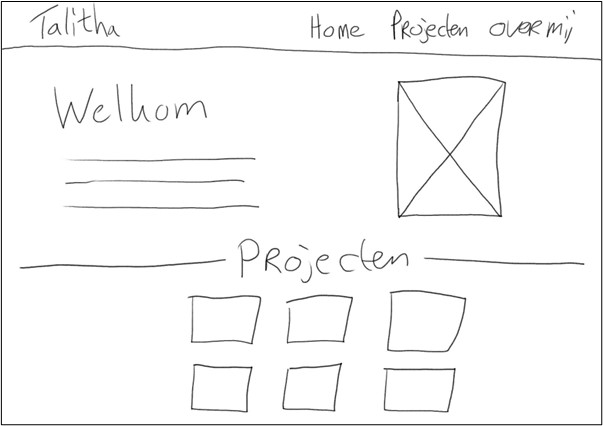 Talitha Home Projecten over mij
Welkom
Projecten